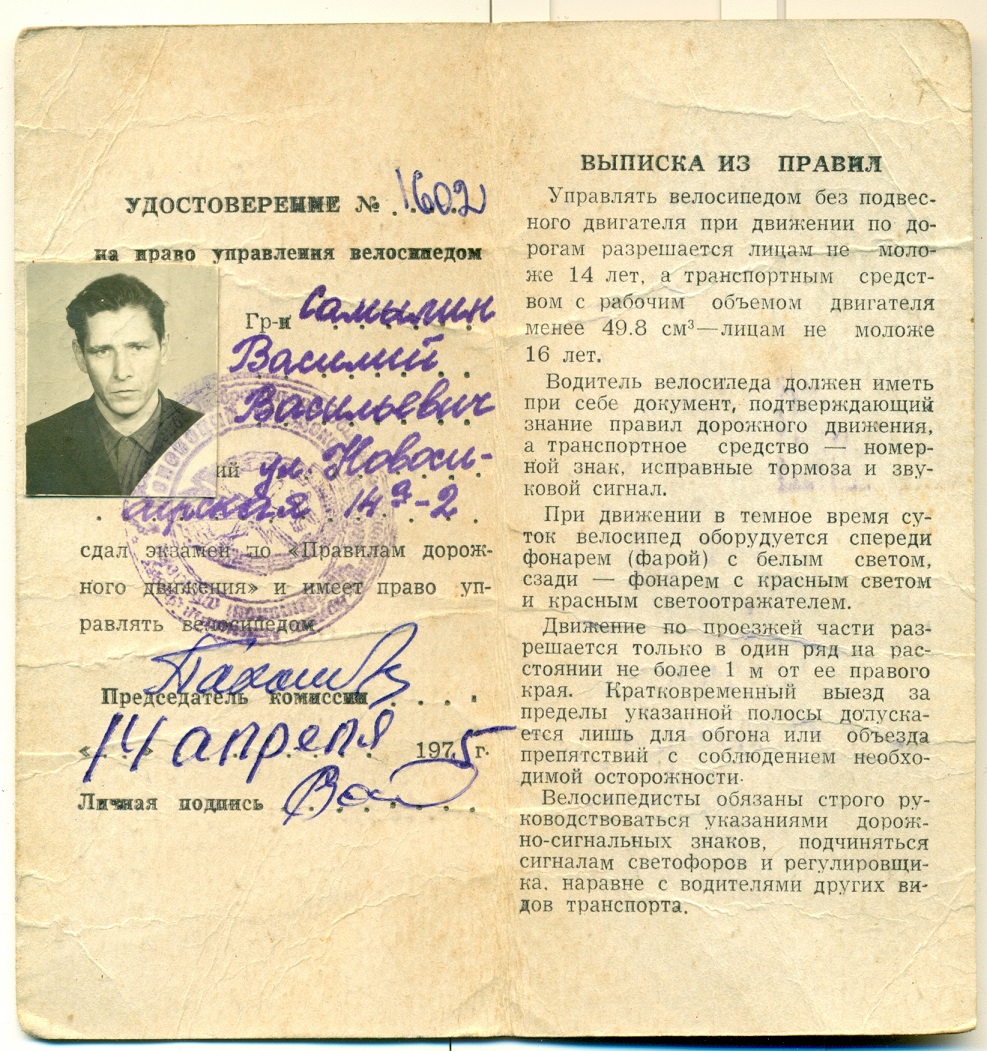 УДОСТОВЕРЕНИЕ № 1602
на право управления велосипедом
Гр-н Самылин
Василий
Васильевич
ий ул. Новоси-
14 2
сдал экзамен по «Правилам дорож-
ного движения» и имеет право уп-
равлять велосипедом.
Председатель комиссии
«14» апреля 1975 г.
Личная подпись
ВЫПИСКА ИЗ ПРАВИЛ
Управлять велосипедом без подвес-
ного двигателя при движении по до-
рогам разрешается лицам не моло-
же 14 лет, а транспортным средст-
вом с рабочим объемом двигателя
менее 49.8 см³—лицам не моложе
16 лет.
Водитель велосипеда должен иметь
при себе документ, подтверждающий
знание правил дорожного движения,
а транспортное средство — номер-
ной знак, исправные тормоза и зву-
ковой сигнал.
При движении в темное время су-
ток велосипед оборудуется спереди
фонарем (фарой) с белым светом,
сзади — фонарем с красным светом
и красным светоотражателем.
Движение по проезжей части раз-
решается только в один ряд на рас-
стоянии не более 1 м от ее правого
края. Кратковременный выезд за
пределы указанной полосы допуска-
ется лишь для обгона или объезда
препятствий с соблюдением необхо-
димой осторожности.
Велосипедисты обязаны строго ру-
ководствоваться указаниями дорож-
но-сигнальных знаков, подчиняться
сигналам светофоров и регулировщи-
ка, наравне с водителями других ви-
дов транспорта.